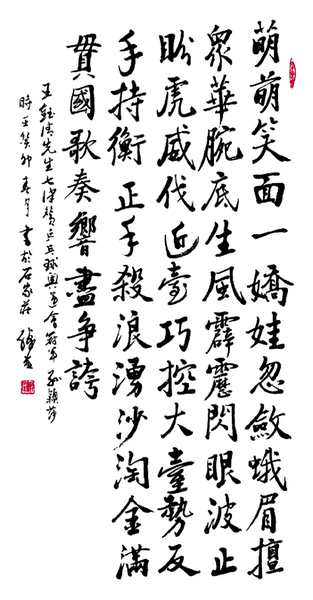 萌萌笑面一嬌娃忽斂蛾眉擅
衆華腕底生風霹靂閃眼波止
盼虎威伐近臺巧控大臺勢反
手持衡正手殺浪湧沙淘金滿
貫國歌奏響盡爭誇
王鈺先生七律贊乒乓球奧運會冠軍孫穎莎
時癸卯春月書於石家莊